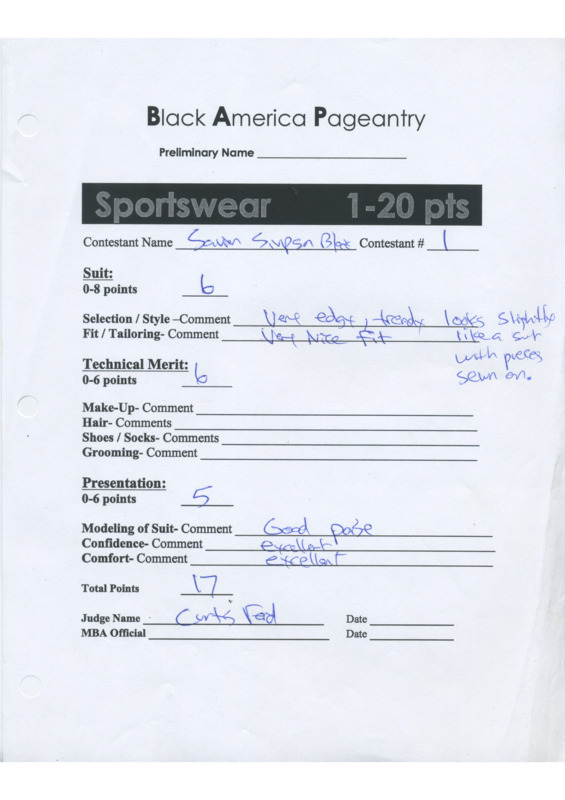 Black America Pageantry
Preliminary Name
Sportswear 1-20 pts
Contestant Name Simpson Contestant # 1
Suit:
0-8 points 6
Selection / Style –Comment Very edgy, trendy looks slightly
Fit / Tailoring- Comment Very Nice Fit like a suit
with pieces
sewn on.
Technical Merit:
0-6 points 6
Make-Up- Comment
Hair- Comments
Shoes / Socks- Comments
Grooming- Comment
Presentation:
0-6 points 5
Modeling of Suit- Comment Good poise
Confidence- Comment excellent
Comfort- Comment excellent
Total Points 17
Judge Name Curtis Date
MBA Official Date